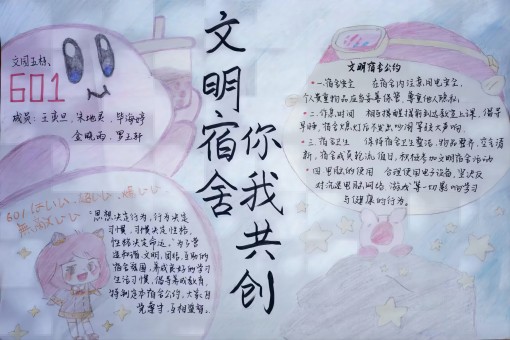 文明宿舍
你我共创
文园五栋
601
成员：王奕卫、朱地英、毕海婷
金晓雨、罗玉轩
601
"思想决定行为，行为决定
习惯，习惯决定性格，
性格决定命运。"为了营
造和谐、文明、团结、互助的
宿舍氛围，养成良好的学习
生活习惯，倡导养成教育，
特制定本宿舍公约，大家自
觉遵守，互相监督。
文明宿舍公约
一.宿舍安全 在宿舍内注意用电安全，
个人贵重物品应当妥善保管，尊重他人隐私。
二.作息时间 相互提醒提前到达教室上课，倡导
早睡，宿舍熄灯后不发出吵闹等较大声响。
三.宿舍卫生 保持宿舍卫生整洁，物品整齐，空气清
新，宿舍成员轮流值日，积极参加文明宿舍活动
四.电脑的使用 合理使用电子设备，坚决反
对沉迷电脑网络、游戏等一切影响学习
与健康的行为。